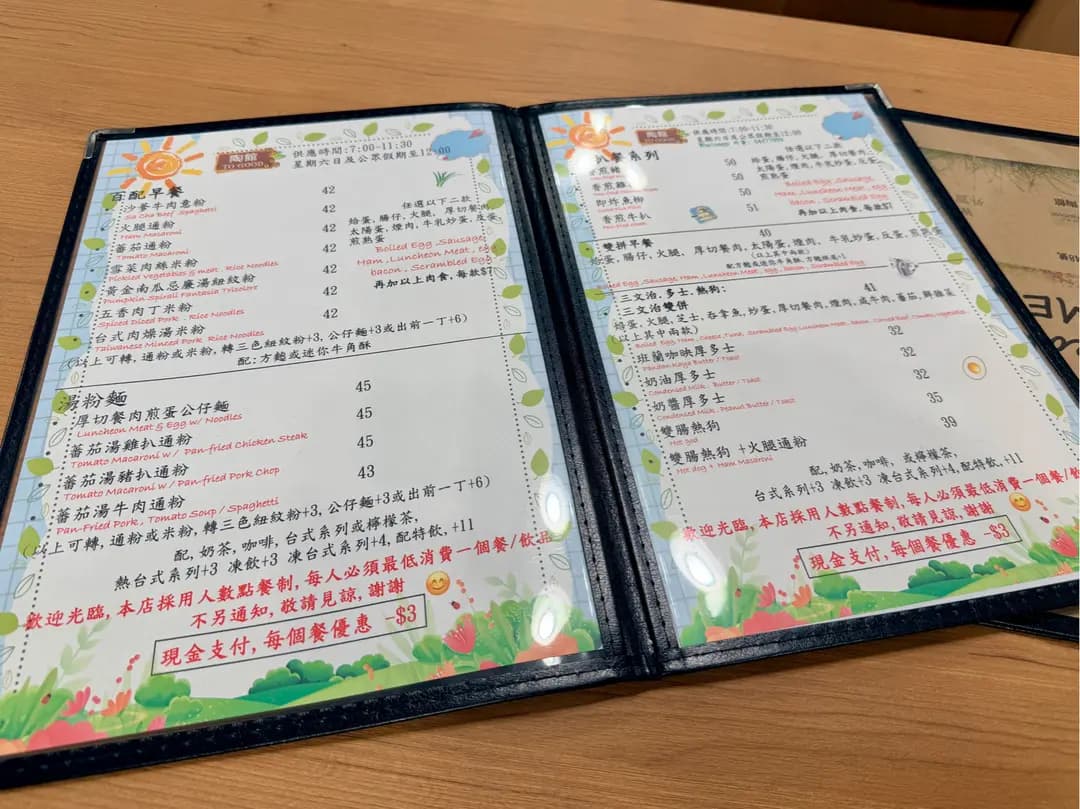 陶館
TO GOOD
供應時間:7:00-11:30
星期六日及公眾假期至12:00
百配早餐
沙爹牛肉意粉 42
Sa Cha Beef .Spaghetti
火腿通粉 42
Ham Macaroni
蕃茄通粉 42
Tomato Macaroni
雪菜肉絲米粉 42
Pickled Vegetables & meat . Rice Noodles
黃金南瓜忌廉湯紐紋粉 42
Pumpkin Spirall Fantasia Tricolore
五香肉丁米粉 42
Spiced Diced Pork . Rice Noodles
台式肉燥湯米粉 42
Taiwanese Minced Pork Rice Noodles
任選以下二款
給蛋,腸仔,火腿, 厚切餐肉
太陽蛋,煙肉,牛乳炒蛋,皮蛋,
煎熱蛋
Boiled Egg ,Sausage,
Ham ,Luncheon Meat, egg
bacon , Scrambled Egg
再加以上肉食,每款$7
(以上可轉,通粉或米粉,轉三色紐紋粉+3,公仔麵+3或出前一丁+6)
配:方麵或迷你牛角酥
湯粉麵
厚切餐肉煎蛋公仔麵 45
Luncheon Meat & Egg w/ Noodles
蕃茄湯雞扒通粉 45
Tomato Macaroni w / Pan-fried Chicken Steak
蕃茄湯豬扒通粉 45
Tomato Macaroni w / Pan-fried Pork Chop
蕃茄湯牛肉通粉 43
Pan-Fried Pork , Tomato Soup / Spaghetti
(以上可轉,通粉或米粉,轉三色紐紋粉+3,公仔麵+3或出前一丁+6)
配,奶茶,咖啡,台式系列或檸檬茶,
熱台式系列+3 凍飲+3 凍台式系列+4,配特飲,+11
歡迎光臨,本店採用人數點餐制,每人必須最低消費一個餐/飲品
不另通知,敬請見諒,謝謝
現金支付,每個餐優惠 -$3
陶館
TO GOOD
供應時間:7:00-11:30
星期六日及公眾假期至12:00
扒餐系列
香煎豬 50
香煎雞 50
即炸魚柳 50
香煎牛扒 51
任選以下二款
給蛋,腸仔,火腿, 厚切餐肉
太陽蛋,煙肉,牛乳炒蛋,皮蛋
煎熱蛋
Boiled Egg ,Sausage
Ham ,Luncheon Meat , egg
bacon , Scrambled Egg
再加以上肉食,每款$7
雙拼早餐 40
給蛋,腸仔,火腿, 厚切餐肉,太陽蛋,煙肉, 牛乳炒蛋,皮蛋,煎熱蛋
(以上其中兩款)
Boiled Egg ,Sausage, Ham ,Luncheon Meat , egg , bacon , Scrambled Egg
三文治,多士,熱狗:
三文治雙併 41
焓蛋,火腿,芝士,吞拿魚,炒蛋,厚切餐肉,煙肉,咸牛肉,蕃茄,鮮雜菜
(以上其中兩款)
Boiled Egg ,Ham , Cheese ,Tuna, Scrambled Egg Luncheon Meat, bacon, Corned Beef ,Tomato, Vegetables
班蘭咖映厚多士 32
Pandan Kaya Butter / Toast
奶油厚多士 32
Condensed Milk . Butter / Toast
奶醬厚多士 32
Condensed Milk . Peanut Butter / Toast
雙腸熱狗 35
Hot god
雙腸熱狗 +火腿通粉 39
Hot dog + Ham Macaroni
配,奶茶,咖啡, 或檸檬茶,
台式系列+3 凍飲+3 凍台式系列+4,配特飲,+11
歡迎光臨,本店採用人數點餐制,每人必須最低消費一個餐/飲
不另通知,敬請見諒,謝謝
現金支付,每個餐優惠 -$3
ME